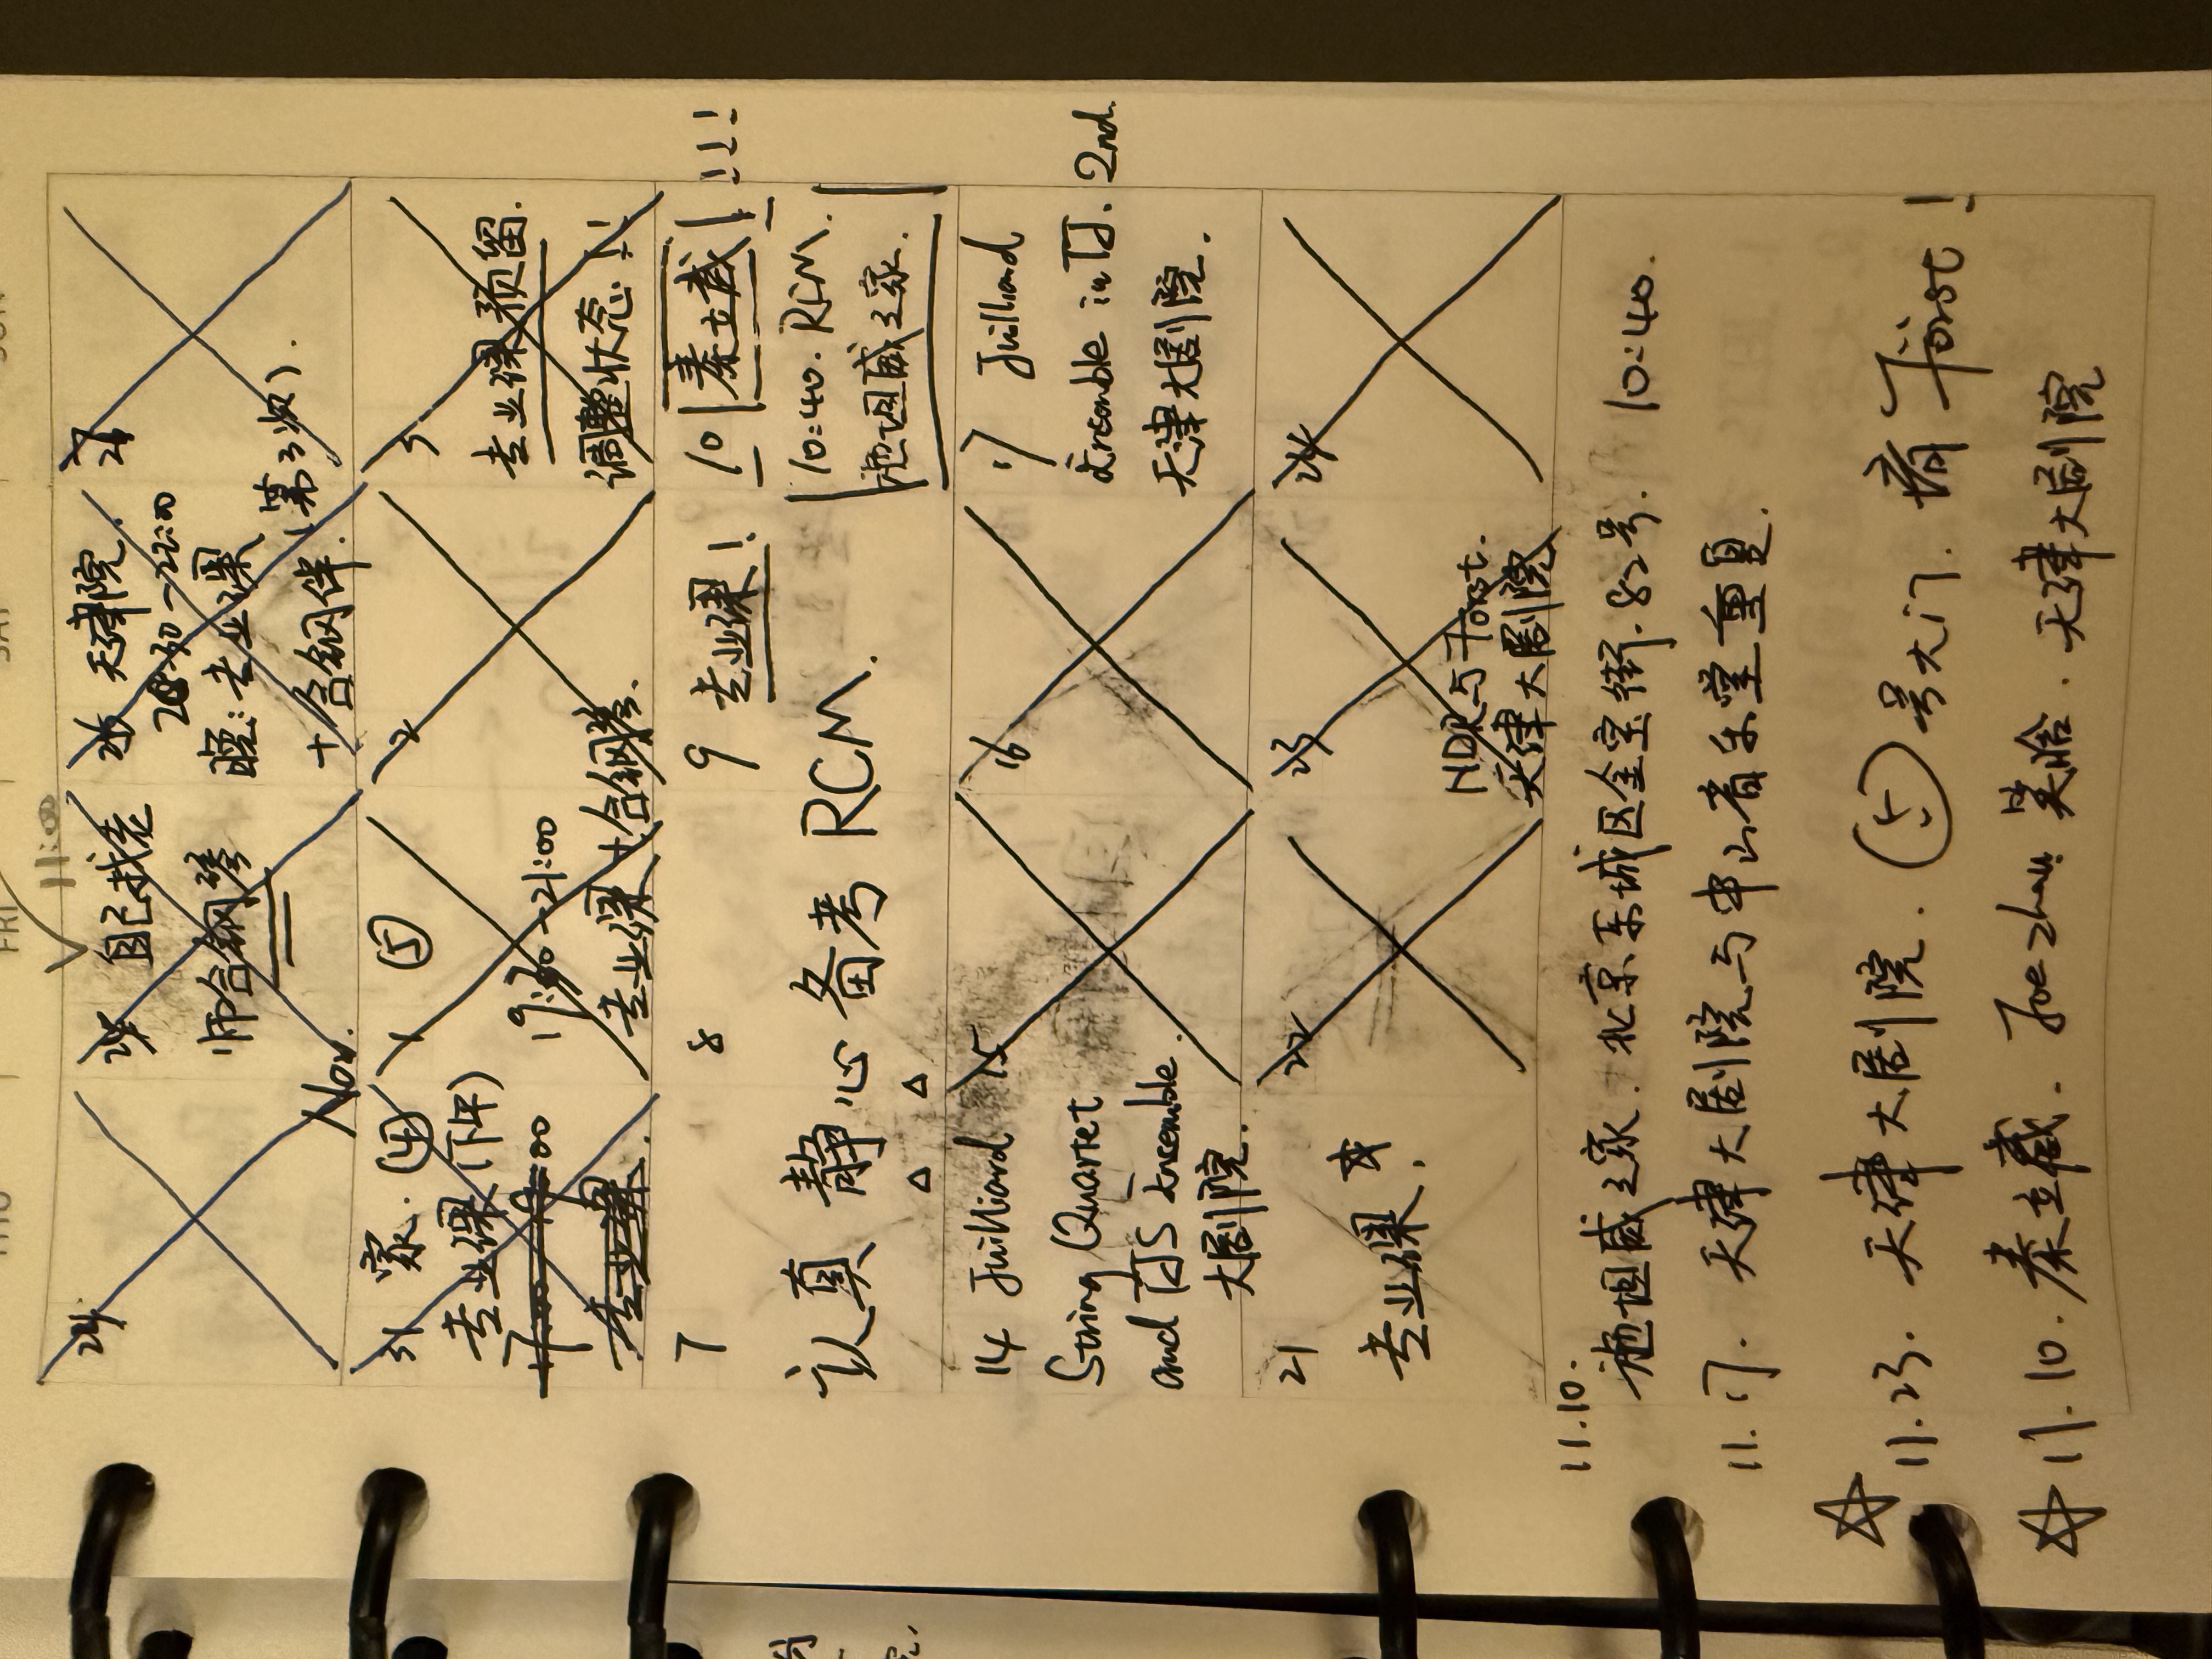 THU FRI SAT SUN
11:00
24
25 自己找老
师合钢琴
26 天津院.
20:30→22:00
晚:专业课
+合钢伴.(第3次).
27
Nov.
31 家. (4)
专业课(下午)
专业课.
1 (5)
19:30→21:00
专业课+合钢琴.
2
3
专业课预留.
调整状态!!
7
8
9 专业课!
10 秦立巍!!!!
10:40. RCM.
施坦威之家.
认真 静心 备考 RCM.
14 Juilliard
String Quartet
and TJS Ensemble.
大剧院.
15
16
17 Juilliard
Ensemble in TJ. 2nd.
天津大剧院.
21
专业课.
22
23
NDR与Forst.
天津大剧院
24
11.10.
施坦威之家. 北京东城区金宝街.82号. 10:40.
11.17. 天津大剧院与中山音乐堂重复.
☆ 11.23. 天津大剧院. (5)号大门. 有Forst!
☆ 11.10. 秦立巍. Joe Zhou 天津大剧院